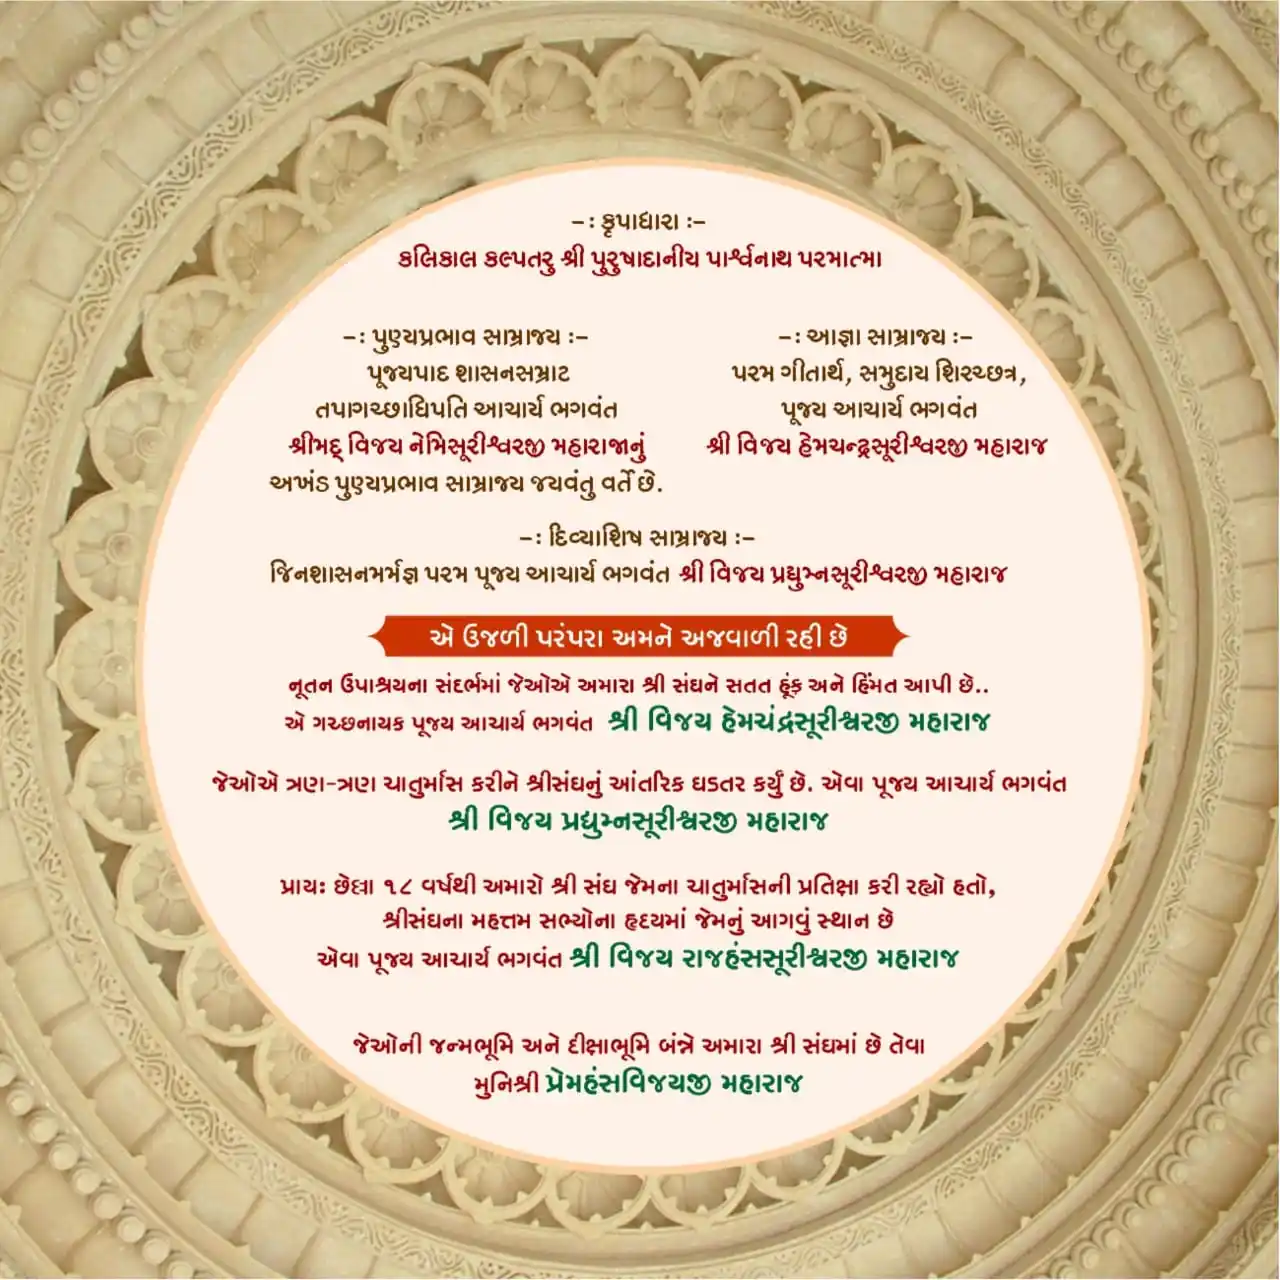 -: કૃપાધારા :-
કલિકાલ કલ્પતરુ શ્રી પુરુષાદાનીય પાર્શ્વનાથ પરમાત્મા
-: પુણ્યપ્રભાવ સામ્રાજ્ય :-
પૂજ્યપાદ શાસનસમ્રાટ
તપાગચ્છાધિપતિ આચાર્ય ભગવંત
શ્રીમદ્ વિજય નેમિસૂરીશ્વરજી મહારાજાનું
અખંડ પુણ્યપ્રભાવ સામ્રાજ્ય જયવંતુ વર્તે છે.
-: આજ્ઞા સામ્રાજ્ય :-
પરમ ગીતાર્થ, સમુદાય શિરચ્છત્ર,
પૂજ્ય આચાર્ય ભગવંત
શ્રી વિજય હેમચન્દ્રસૂરીશ્વરજી મહારાજ
-: દિવ્યાશિષ સામ્રાજ્ય :-
જિનશાસનમર્મજ્ઞ પરમ પૂજ્ય આચાર્ય ભગવંત શ્રી વિજય પ્રદ્યુમ્નસૂરીશ્વરજી મહારાજ
એ ઉજળી પરંપરા અમને અજવાળી રહી છે
નૂતન ઉપાશ્રયના સંદર્ભમાં જેઓએ અમારા શ્રી સંઘને સતત હૂંફ અને હિંમત આપી છે..
એ ગચ્છનાયક પૂજ્ય આચાર્ય ભગવંત શ્રી વિજય હેમચંદ્રસૂરીશ્વરજી મહારાજ
જેઓએ ત્રણ-ત્રણ ચાતુર્માસ કરીને શ્રીસંઘનું આંતરિક ઘડતર કર્યું છે. એવા પૂજ્ય આચાર્ય ભગવંત
શ્રી વિજય પ્રદ્યુમ્નસૂરીશ્વરજી મહારાજ
પ્રાયઃ છેલ્લા ૧૮ વર્ષથી અમારો શ્રી સંઘ જેમના ચાતુર્માસની પ્રતિક્ષા કરી રહ્યો હતો,
શ્રીસંઘના મહત્તમ સભ્યોના હૃદયમાં જેમનું આગવું સ્થાન છે
એવા પૂજ્ય આચાર્ય ભગવંત શ્રી વિજય રાજહંસસૂરીશ્વરજી મહારાજ
જેઓની જન્મભૂમિ અને દીક્ષાભૂમિ બંન્ને અમારા શ્રી સંઘમાં છે તેવા
મુનિશ્રી પ્રેમહંસવિજયજી મહારાજ